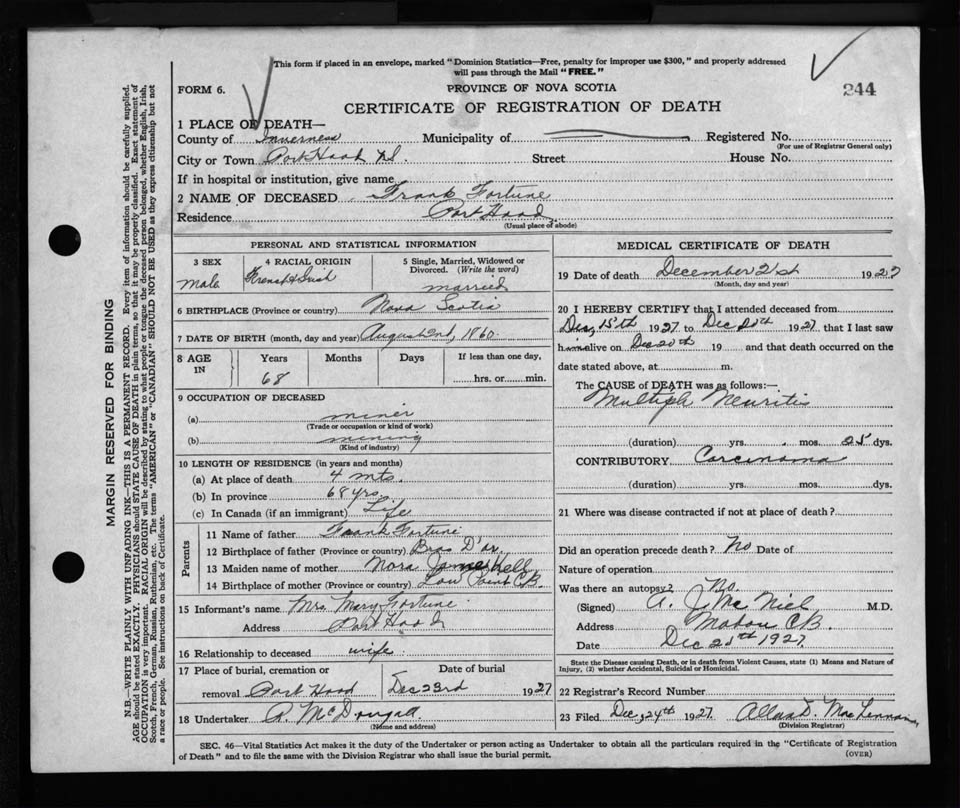 This form if placed in an envelope, marked "Dominion Statistics—Free, penalty for improper use $300," and properly addressed
will pass through the Mail "FREE."
244
FORM 6.
PROVINCE OF NOVA SCOTIA
CERTIFICATE OF REGISTRATION OF DEATH
1 PLACE OF DEATH—
County of Inverness Municipality of Registered No.
(For use of Registrar General only)
City or Town Port Hood N.S. Street House No.
If in hospital or institution, give name
2 NAME OF DECEASED Frank Fortune
Residence Port Hood
(Usual place of abode)
PERSONAL AND STATISTICAL INFORMATION
3 SEX 4 RACIAL ORIGIN 5 Single, Married, Widowed or Divorced. (Write the word)
male French & Irish married
6 BIRTHPLACE (Province or country) Nova Scotia
7 DATE OF BIRTH (month, day and year) August 2nd, 1860
8 AGE IN Years Months Days If less than one day,
68 hrs. or min.
9 OCCUPATION OF DECEASED
(a) miner
(Trade or occupation or kind of work)
(b) mining
(Kind of industry)
10 LENGTH OF RESIDENCE (in years and months)
(a) At place of death 4 mts.
(b) In province 68 yrs
(c) In Canada (if an immigrant) Life
Parents
11 Name of father Frank Fortune
12 Birthplace of father (Province or country) Bras D'or
13 Maiden name of mother Nora
14 Birthplace of mother (Province or country) Low Point C.B.
15 Informant's name Mrs Mary Fortune
Address Port Hood
16 Relationship to deceased wife
17 Place of burial, cremation or Date of burial
removal Port Hood Dec 23rd 1927
18 Undertaker A. McDougall
(Name and address)
MEDICAL CERTIFICATE OF DEATH
19 Date of death December 21st 1927
(Month, day and year)
20 I HEREBY CERTIFY that I attended deceased from
Dec, 15th 1927 to Dec 20th 1927 that I last saw
him alive on Dec 20th 19 and that death occurred on the
date stated above, at m.
The CAUSE of DEATH was as follows:—
Multiple Neuritis
(duration) yrs. mos. 25 dys.
CONTRIBUTORY Carcinoma
(duration) yrs. mos. dys.
21 Where was disease contracted if not at place of death?
Did an operation precede death? No Date of
Nature of operation
Was there an autopsy? No.
(Signed) A. J. McNiel M.D.
Address Mabou CB
Date Dec 21th 1927
State the Disease causing Death, or in death from Violent Causes, state (1) Means and Nature of
Injury, (2) whether Accidental, Suicidal or Homicidal.
22 Registrar's Record Number
23 Filed Dec, 24th 1927. Allan D. MacLennan
(Division Registrar)
SEC. 46—Vital Statistics Act makes it the duty of the Undertaker or person acting as Undertaker to obtain all the particulars required in the "Certificate of Registration
of Death" and to file the same with the Division Registrar who shall issue the burial permit. (OVER)
MARGIN RESERVED FOR BINDING
N.B.—WRITE PLAINLY WITH UNFADING INK—THIS IS A PERMANENT RECORD. Every item of information should be carefully supplied.
AGE should be stated EXACTLY. PHYSICIANS should STATE CAUSE OF DEATH in plain terms, so that it may be properly classified. Exact statement of
OCCUPATION is very important. RACIAL ORIGIN will be described by stating to what people or tongue the deceased person belonged, whether English, Irish,
Scotch, French, German, Russian, Ruthenian, etc. The terms "AMERICAN" or "CANADIAN" SHOULD NOT BE USED as they express citizenship but not
a race or people. See instructions on back of Certificate.